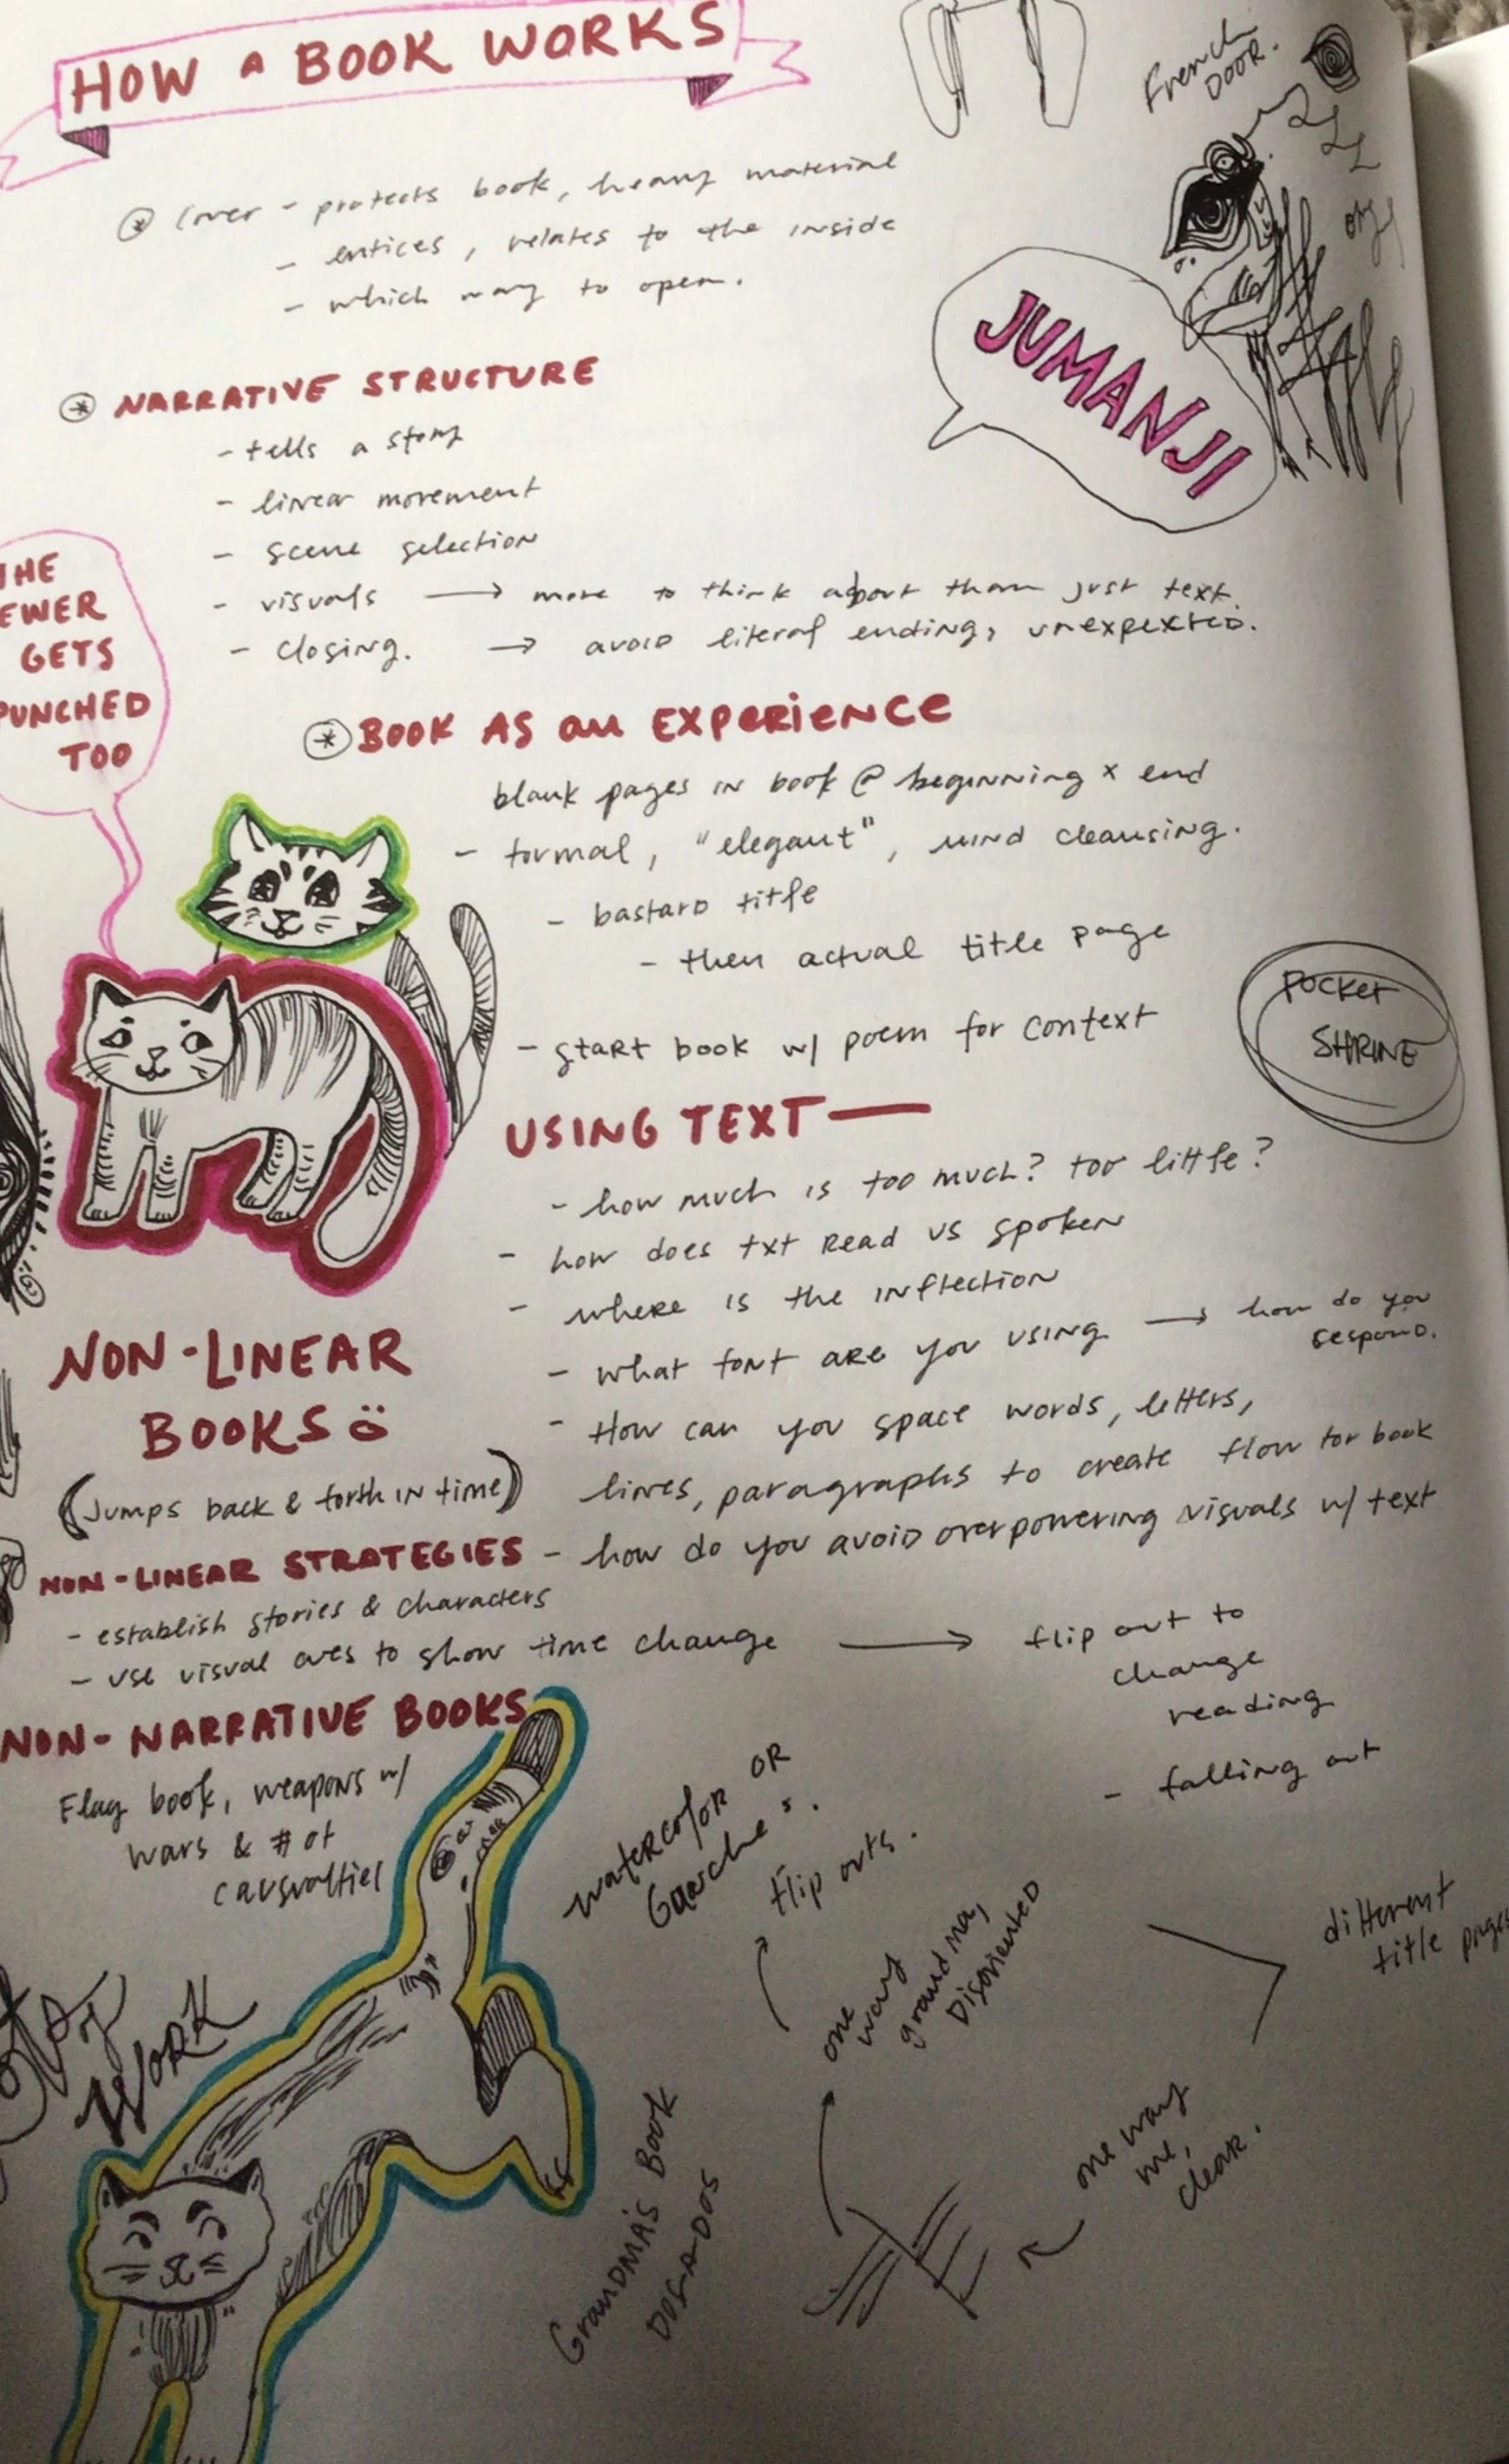 HOW A BOOK WORKS
French
DOOR.
Cover - protects book, heavy material
- entices, relates to the inside
- which way to open.
JUMANJI
NARRATIVE STRUCTURE
- tells a story
- linear movement
- scene selection
- visuals → more to think about than just text.
- closing. → avoid literal ending, unexpexted.
THE
EWER
GETS
PUNCHED
TOO
BOOK AS an EXPERIENCE
blank pages in book @ beginning x end
- formal, "elegant", mind cleansing.
- bastard title
- then actual title page
- start book w/ poem for context
POCKET
SHRINE
USING TEXT—
- how much is too much? too little?
- how does txt read vs spoken
- where is the inflection
- what font are you using → how do you
respond.
- How can you space words, letters,
lines, paragraphs to create flow for book
- how do you avoid overpowering visuals w/ text
NON-LINEAR
BOOKS
(Jumps back & forth in time)
NON-LINEAR STRATEGIES
- establish stories & characters
- use visual cues to show time change → flip out to
change
reading
- falling out
NON-NARRATIVE BOOKS
Flag book, weapons w/
wars & # of
causualties
watercolor OR
Gauche's.
flip outs.
one
way
grandma,
Disoriented
different
title pages
WORK
one way
me,
clear.
Grandma's Book
DOS-A-DOS